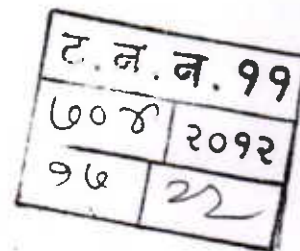 ट. न. न. ११
७०४ २०१२
१७ २२